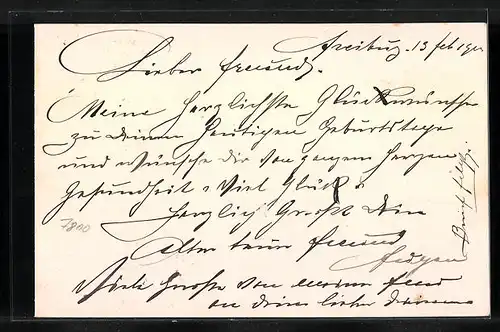 Freiburg. 13 Feb 19
Lieber Freund.
Meine Herzlichste Glückwünsche
zu deinem Heutigen Geburtstage
und wünsche Dir von ganzem Herzen
Gesundheit & Viel Glück &
Herzlich Grüßt Dein
Alter treuer Freund
Eugen
Viele Grüsse von meiner Frau
an deine liebe
Brief folgt.
7800